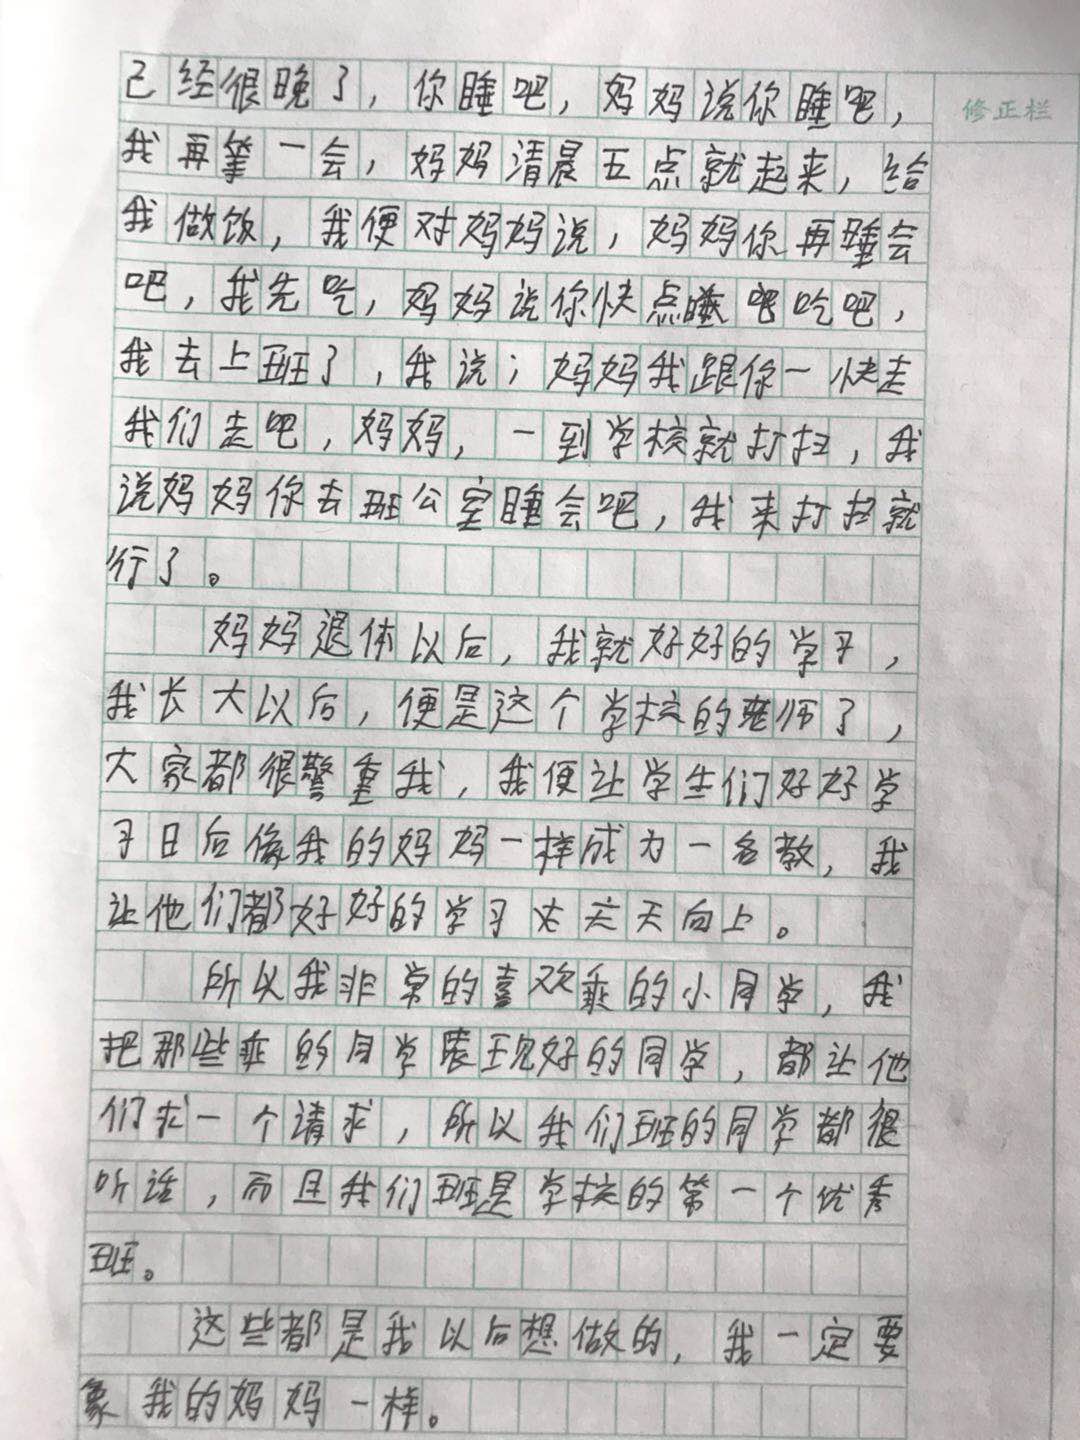 己经很晚了，你睡吧，妈妈说你睡吧，
修正栏
我再等一会，妈妈清晨五点就起来，给
我做饭，我便对妈妈说，妈妈你再睡会
吧，我先吃，妈妈说你快点睡吧吃吧，
我去上班了，我说；妈妈我跟你一快走
我们走吧，妈妈，一到学校就打扫，我
说妈妈你去班公室睡会吧，我来打扫就
行了。
妈妈退体以后，我就好好的学习，
我长大以后，便是这个学校的老师了，
大家都很警重我，我便让学生们好好学
习日后像我的妈妈一样成为一名教，我
让他们都好好的学习天天向上。
所以我非常的喜欢乖的小同学，我
把那些乖的同学表现好的同学，都让他
们求一个请求，所以我们班的同学都很
听话，而且我们班是学校的第一个优秀
班。
这些都是我以后想做的，我一定要
象我的妈妈一样。